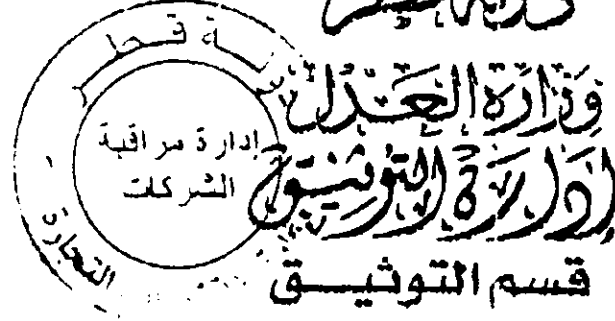 دولة قطر
وزارة العدل
إدارة التوثيق
قسم التوثيق
دولة قطر
إدارة مراقبة
الشركات
التجارة